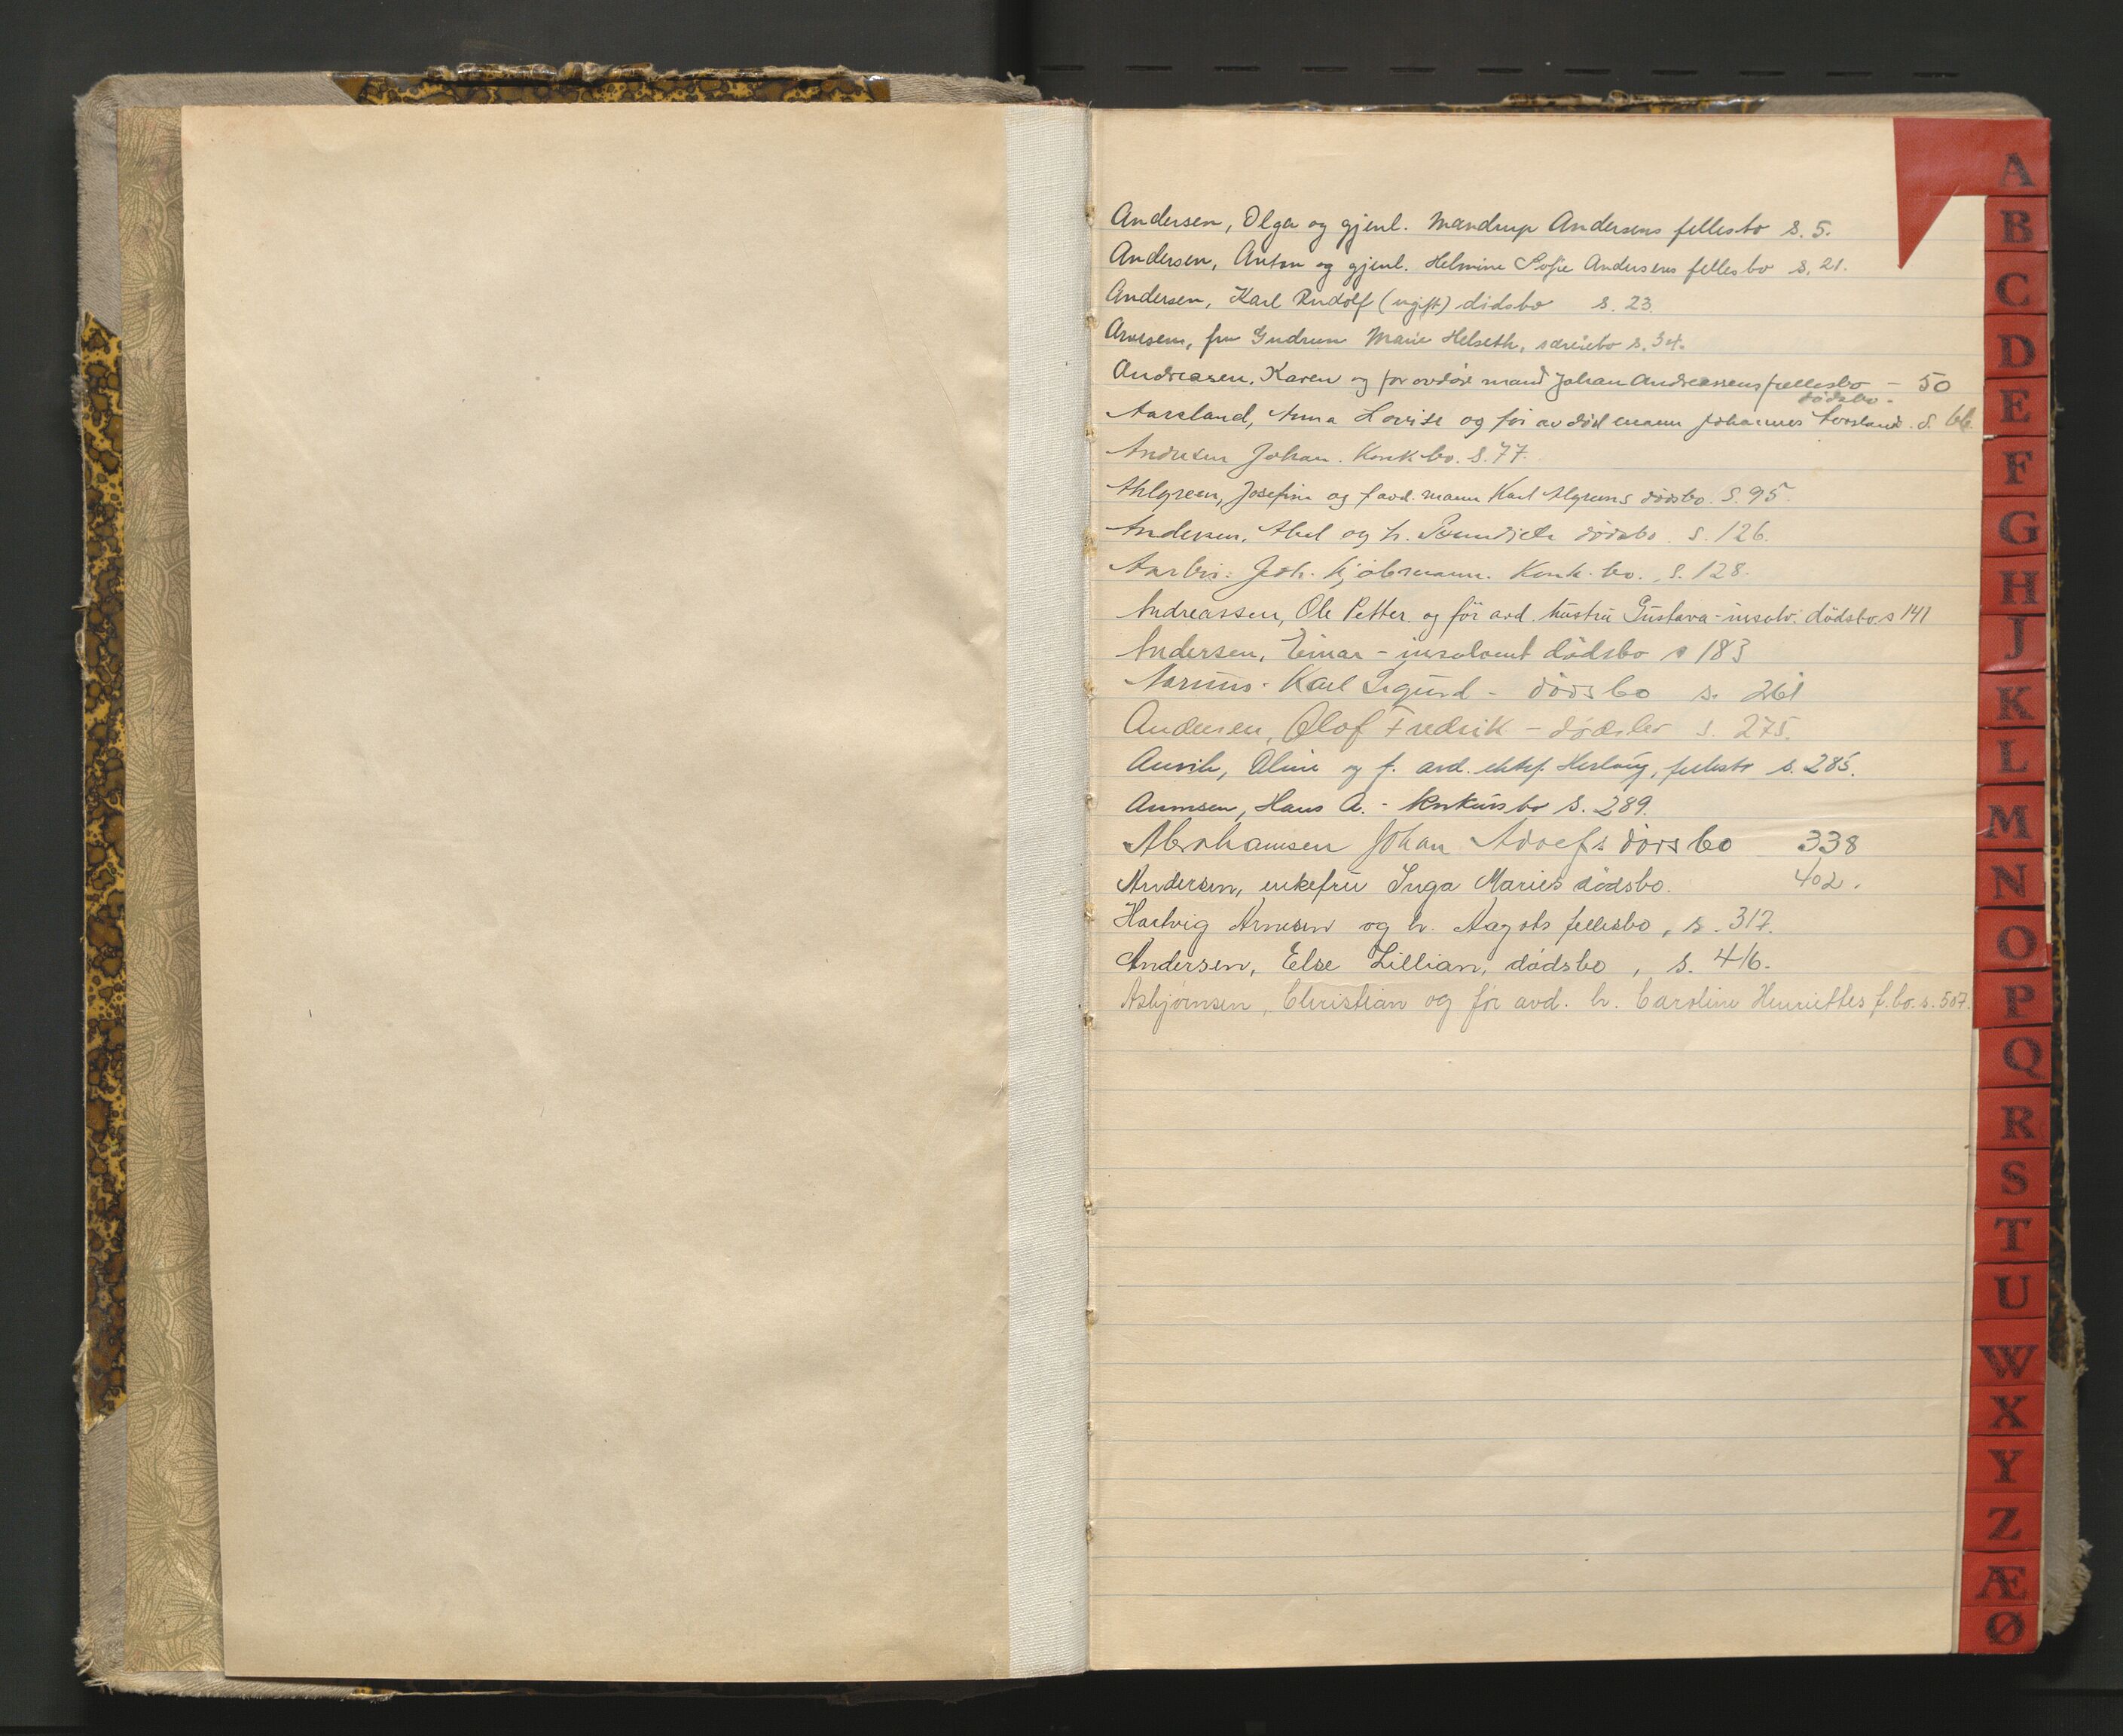 Andersen, Olga og gjenl. Mandrup Andersens fellesbo s. 5.
Andersen, Anton og gjenl. Helmine Sofie Andersens fellesbo s. 21.
Andersen, Karl Rudolf (ugift) dødsbo s. 23.
fru Gudrun Marie Helseth, særeiebo s. 34.
Andreasen, Karen og før avdöd mand Johan Andreassens fællesbo - 50
dödsbo.
Aarsland, Anna Lovise og för avdöd mann Johannes Aarsland. S. 66.
Andresen Johan. Konk.bo. S. 77.
Ahlgreen, Josefine og f. avd. mann Karl Algreens dödsbo. S. 95.
Andersen, og h. dödsbo. S. 126.
Joh. Kjöbmann. Konk. bo. S. 128.
Andreassen, Ole Petter og för avd. hustru Gustava - insolv. dödsbo s 141
Andersen, Einar - insolvent dödsbo s 183
Karl Sigurd - dödsbo s. 261
Andersen, Olof Fredrik - dödsbo s. 275.
Oline og f. avd. ektef. fellesbo s. 285.
Hans A. - konkursbo S. 289.
Abrahamsen Johan Adolfs dödsbo 338
Andersen, enkefru Inga Maries dödsbo. 402.
Hartvig Arnesen og h. Aagots fellesbo, s. 317.
Andersen, Else Lillian, dödsbo, s. 416.
Asbjørnsen, Christian og før avd. h. Caroline Henriettes f.bo. s. 507.
A
B
C
D
E
F
G
H
J
K
L
M
N
O
P
Q
R
S
T
U
W
X
Y
Z
Æ
Ø